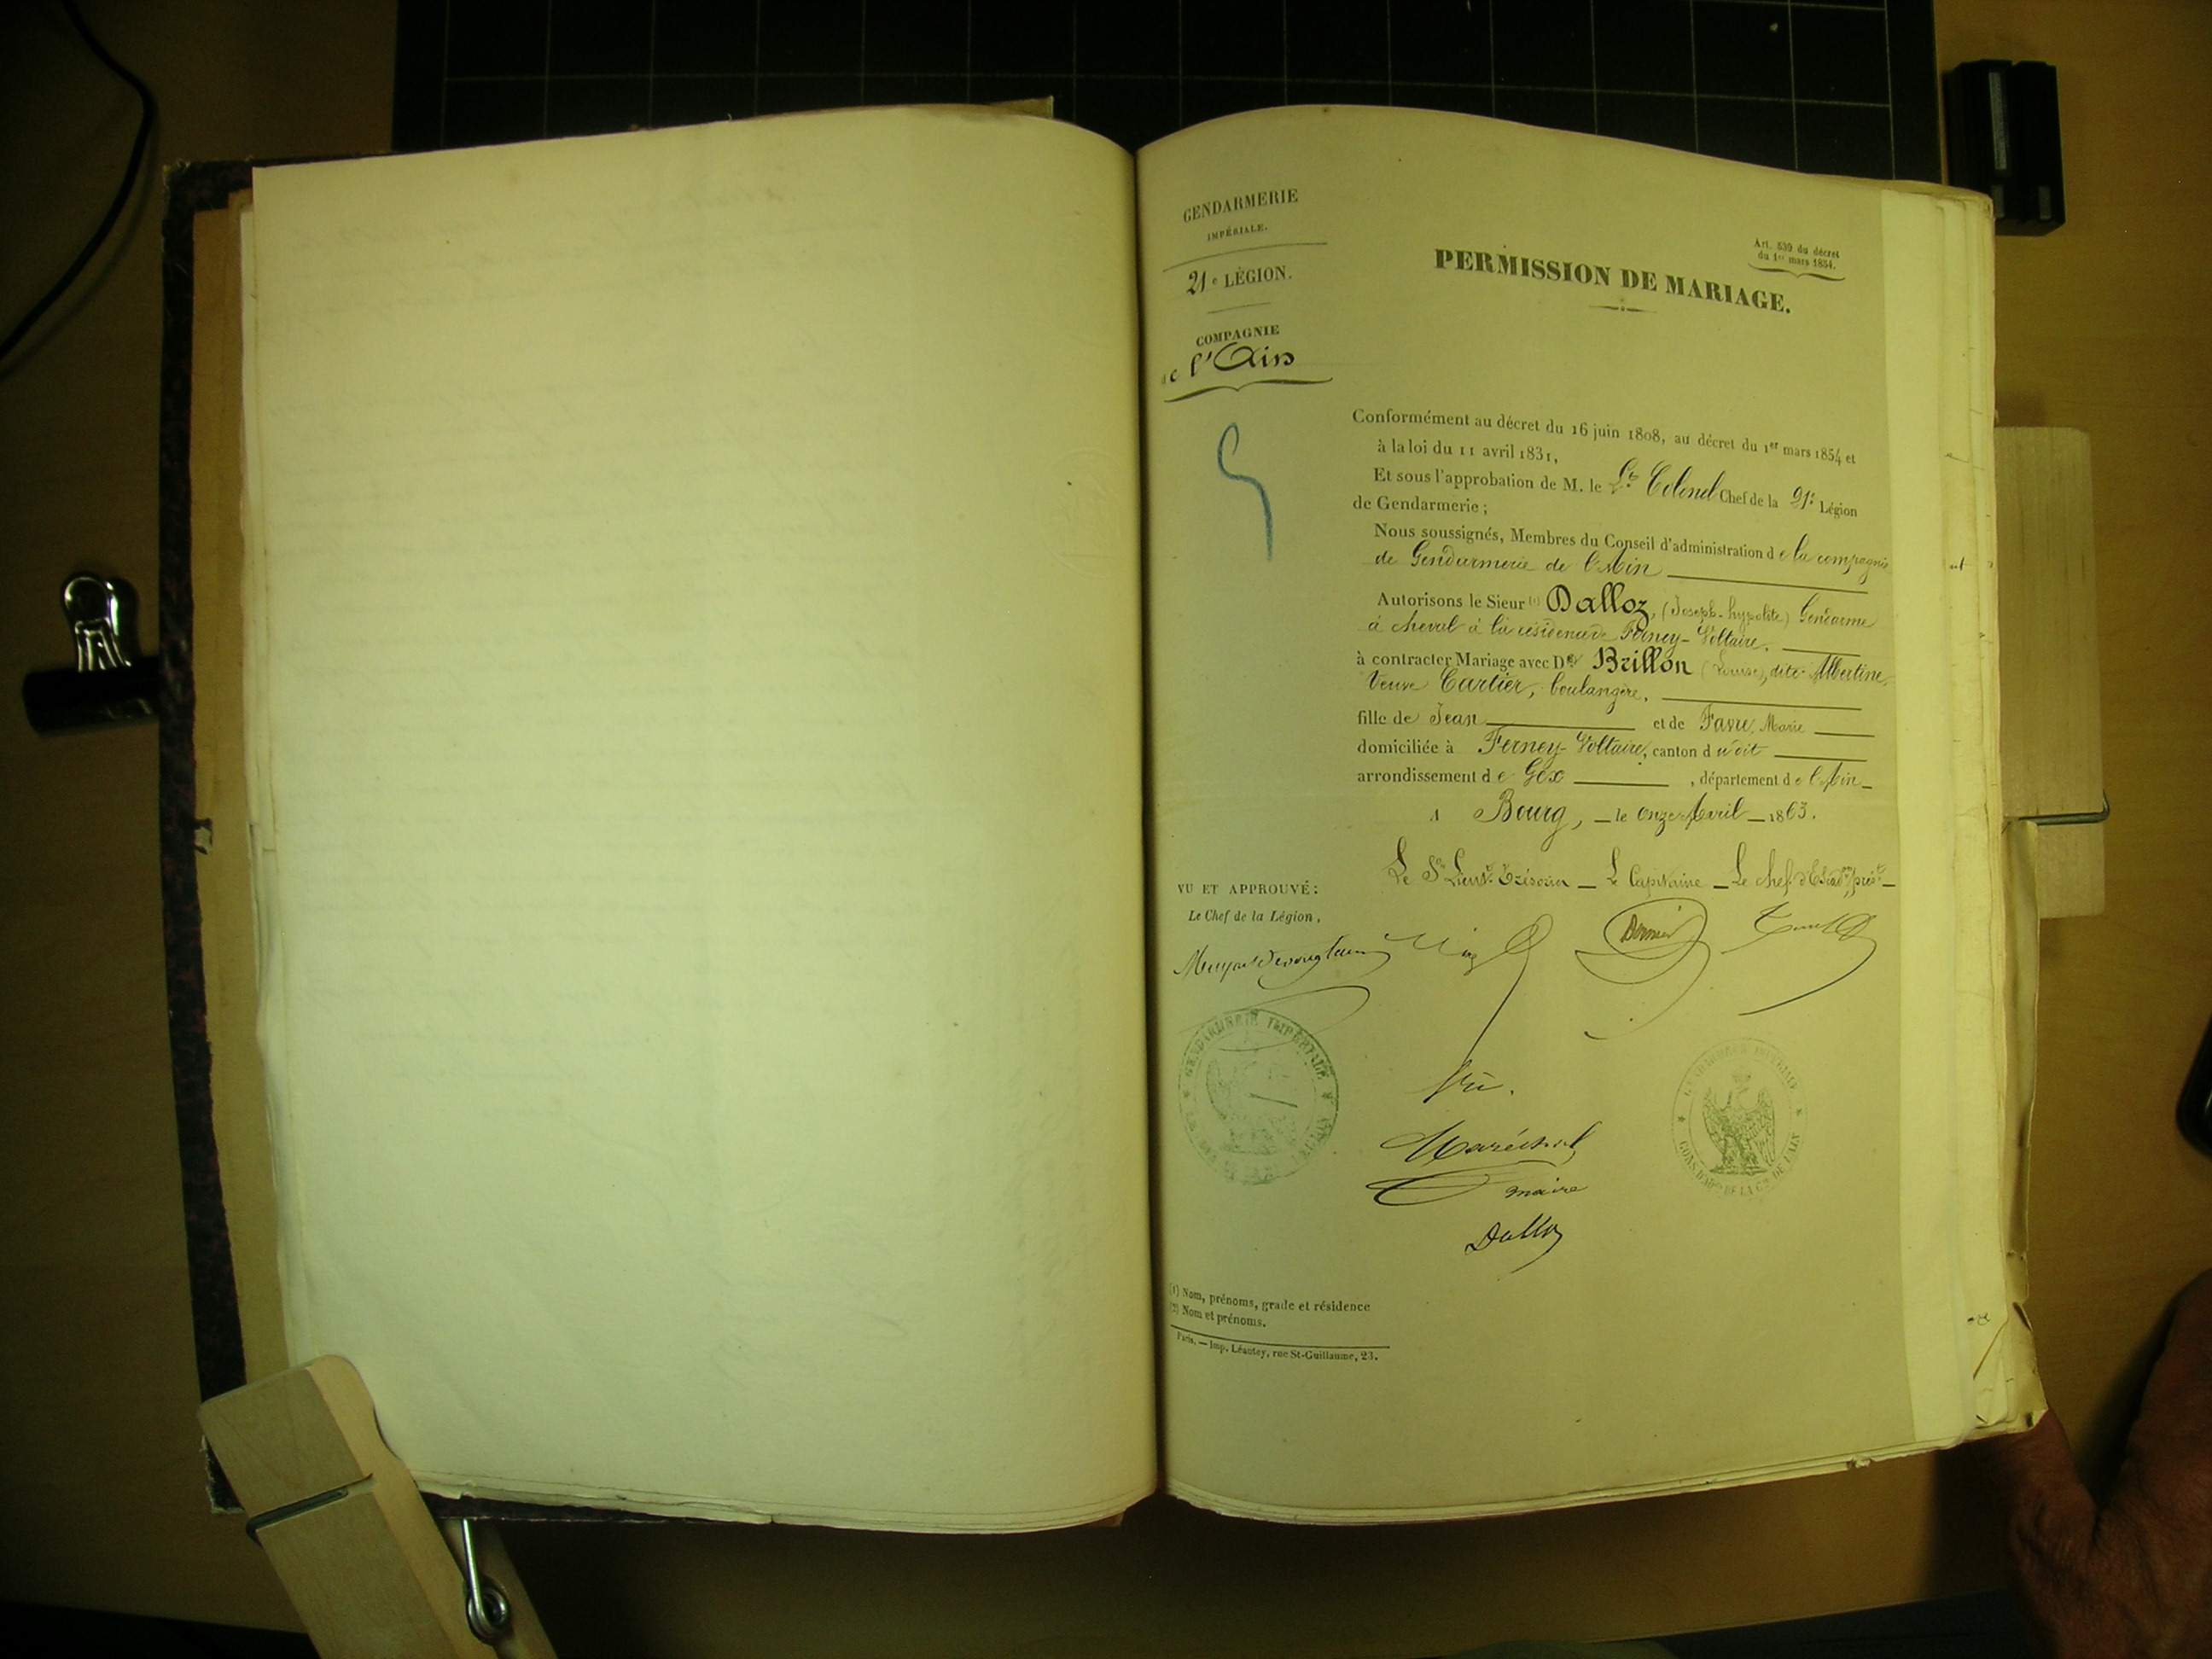 GENDARMERIE
IMPÉRIALE.
21e LÉGION.
COMPAGNIE
de l'Ain
Art. 539 du décret
du 1er mars 1854.
PERMISSION DE MARIAGE.
Conformément au décret du 16 juin 1808, au décret du 1er mars 1854 et
à la loi du 11 avril 1831,
Et sous l'approbation de M. le Lt Colonel Chef de la 21e Légion
de Gendarmerie ;
Nous soussignés, Membres du Conseil d'administration de la compagnie
de Gendarmerie de l'Ain
Autorisons le Sieur (1) Dalloz, (Joseph-hypolite) Gendarme
à cheval à la résidence de Ferney-Voltaire.
à contracter Mariage avec D Brillon (Louise), dite Albertine,
Veuve Cartier, boulangère.
fille de Jean et de Favre, Marie
domiciliée à Ferney-Voltaire, canton dudit
arrondissement de Gex, département de l'Ain
A Bourg, le onze Avril 1863.
Le S. Lieut. Trésorier — Le Capitaine — Le chef d'Escadon prést
VU ET APPROUVÉ :
Le Chef de la Légion,
GENDARMERIE IMPÉRIALE
Vu.
Maréchal
maire
Dalloz
CONS. D'ADon DE LA Cie DE L'AIN
(1) Nom, prénoms, grade et résidence
(2) Nom et prénoms.
Paris. — Imp. Léautey, rue St-Guillaume, 23.